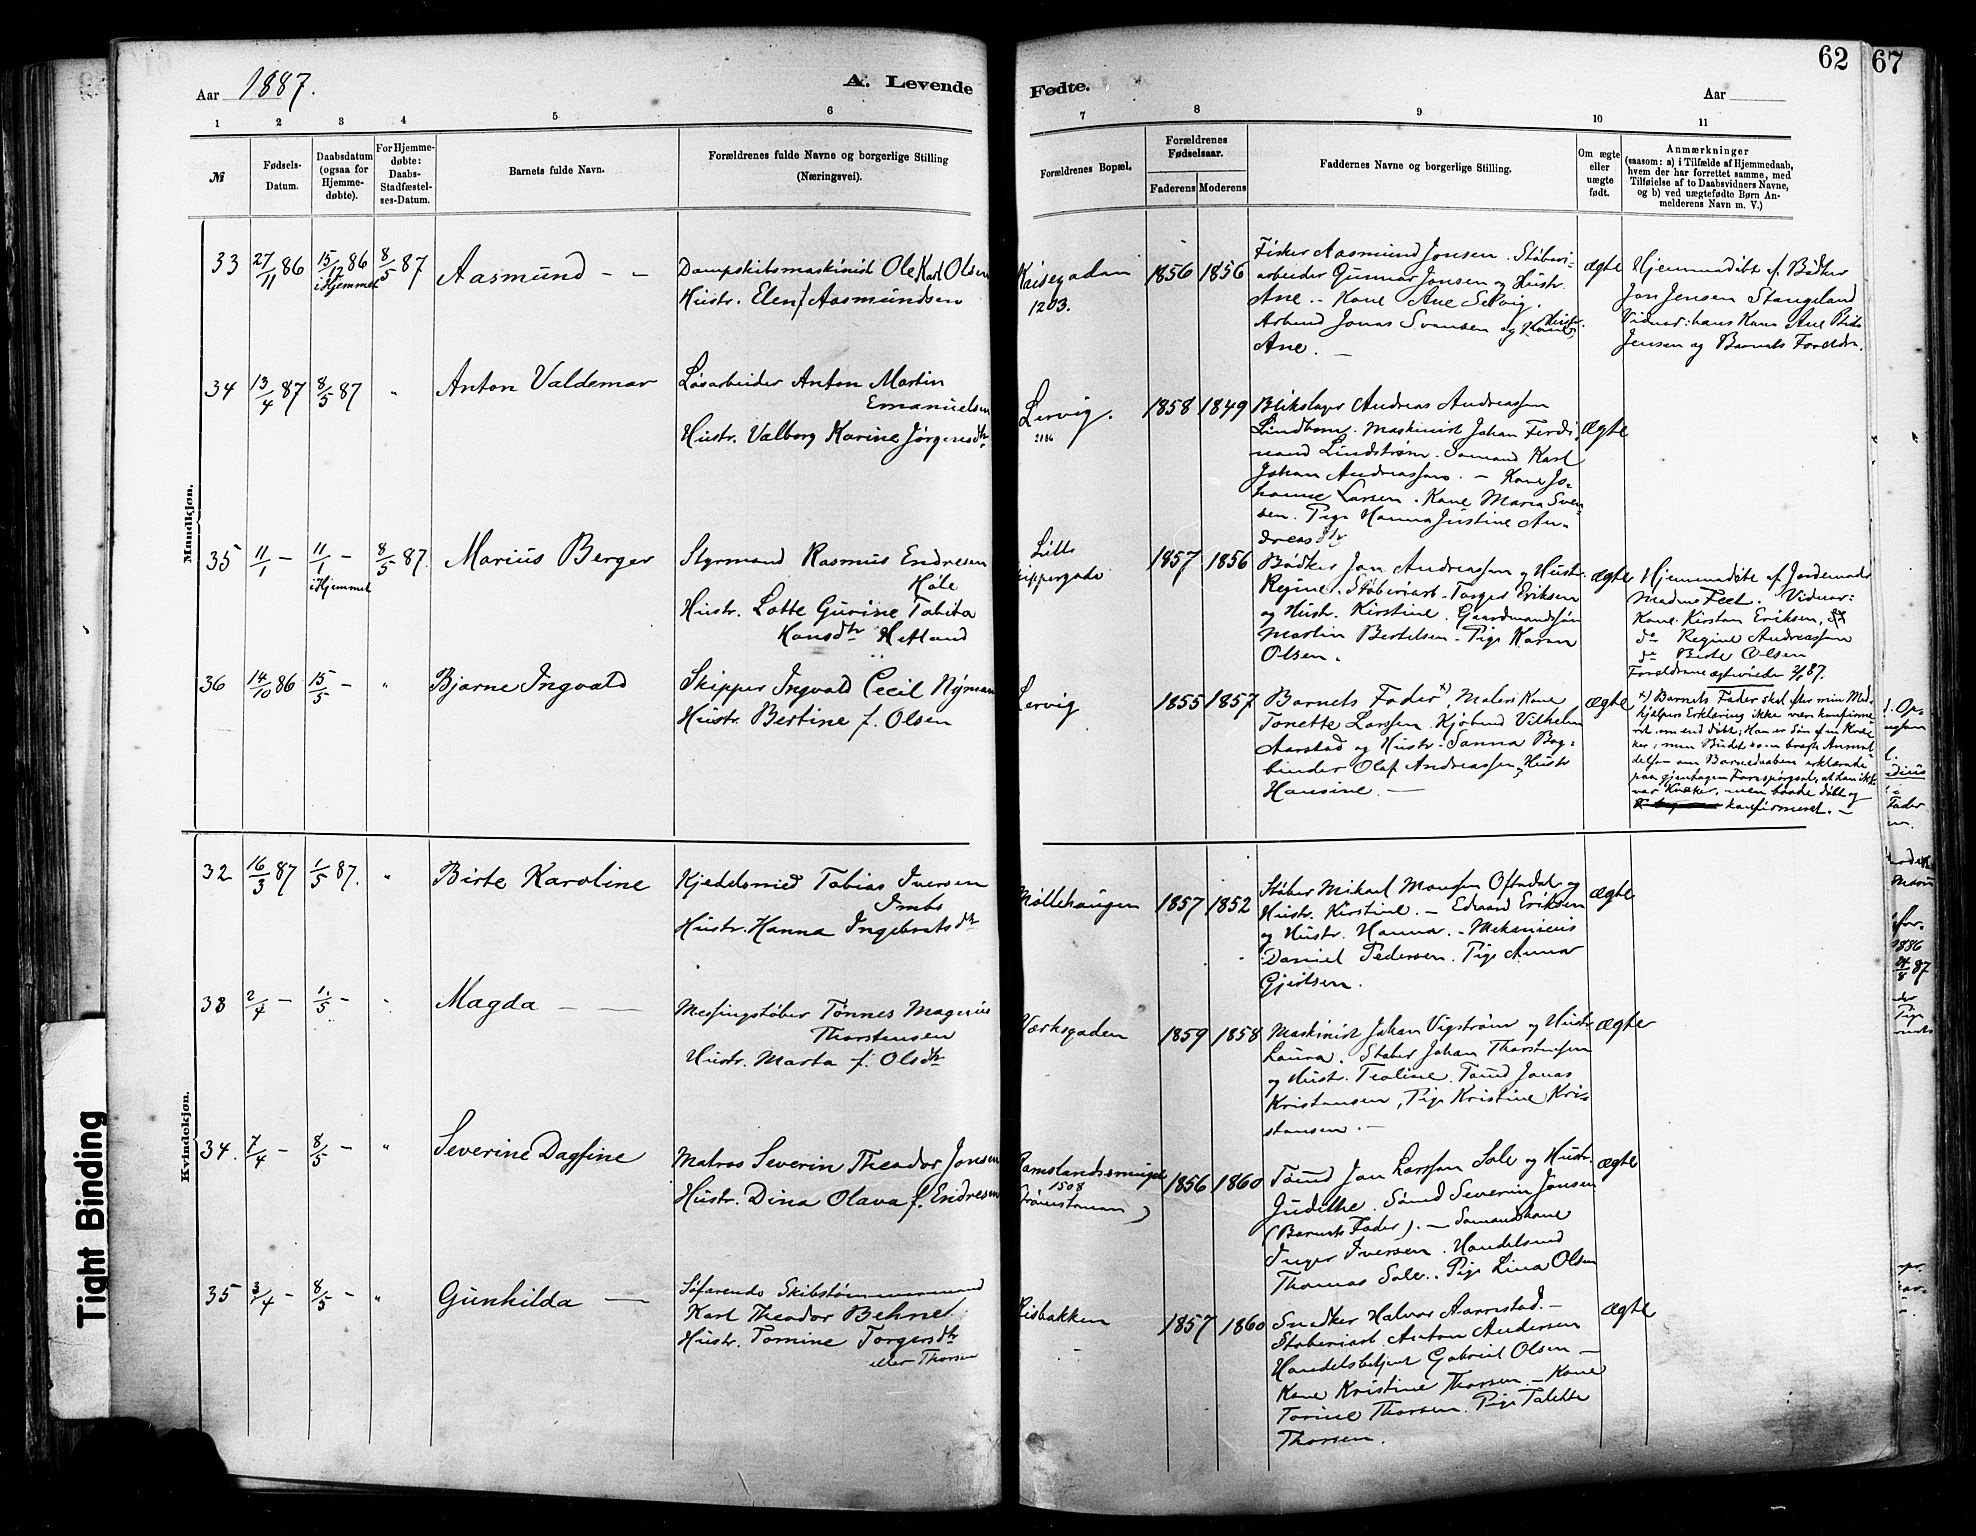 62
67
Aar 1887.
A. Levende
Fødte.
Aar
1 2 3 4 5 6
7 8 9 10 11
№
Fødsels-
Datum.
Daabsdatum
(ogsaa for
Hjemme-
døbte).
For Hjemme-
døbte:
Daabs-
Stadfæstel-
ses-Datum.
Barnets fulde Navn.
Forældrenes fulde Navne og borgerlige Stilling
(Næringsvei).
Forældrenes Bopæl.
Forældrenes
Fødselsaar.
Faderens Moderens
Faddernes Navne og borgerlige Stilling.
Om ægte
eller
uægte
født.
Anmærkninger
(saasom: a) i Tilfælde af Hjemmedaab,
hvem der har forrettet samme, med
Tilføielse af to Daabsvidners Navne,
og b) ved uægtefødte Børn An-
melderens Navn m. V.)
Mandkjøn.
33 27/11 86 15/12 86 8/5 87
i Hjemmet
Aasmund
Dampskibsmaskinist Ole Karl Olsen
Hustr. Elen f. Aasmundsen
1203.
1856 1856
Fisker Aasmund Jonsen. Støberi-
arbeider Gunnar Jonsen og Hustr.
Ane. - Kone Ane Selvig.
Arbmd Jonas Svensen og Hustr.
Ane. -
ægte
Hjemmedøbt af Bødker
Jon Jensen Stangeland
Vidner: hans Kone Ane
Jensen og Barnets Foreldre.
34 13/4 87 8/5 87 "
Anton Valdemar
Løsarbeider Anton Martin
Emanuelsen
Hustr. Valborg Karine Jørgensdtr
Lervig.
1858 1849
Blikslager Andreas Andreassen
Lindbom. Maskinist Johan Ferdi
nand Lindstrøm. Sømand Karl
Johan Andreassen. - Kone Jo-
hanne Larsen. Kone Maria Sven
sen. Pige Hanna Justine An-
dreasdtr
ægte
35 11/1 - 11/1 - 8/5 87.
i Hjemmet
Marius Berger
Styrmand Rasmus Endresen
Høle
Hustr. Lotte Gurine Tobita
Hansdtr Hetland
Lille
Skippergade
1857 1856
Bødker Jon Andreassen og Hustr.
Regine. Støberiarb. Torger Eriksen
og Hustr. Kirstine. Gaardmandssøn
Martin Bertelsen. Pige Karen
Olsen.
ægte
Hjemmedøbt af Jordemoder
Madme Feet. Vidner:
Kone Kirsten Eriksen,
do Regine Andreassen
do Birte Olsen
36 14/10 86 15/5 - "
Bjarne Ingvald
Skipper Ingvald Cecil Nyman
Hustr. Bertine f. Olsen
Lervig
1855 1857
Barnets Fader x), Maleri Kone
Tonette Larsen. Kjøbmd Vilhelm
Aarstad og Hustr. Sanna Bog-
binder Olaf Andreassen, Hustr
Hansine. -
ægte
x) Barnets Fader skal efter min Med
hjælpers Erklæring ikke være konfirme
ret, om end døbt; Han er Søn af en Kvæ
ker; men Budet som bragte Anmel
delsen om Barnedaaben erklærede
paa gjentagen Forespørgsel, at han ikke
var Kvæker, men baade døbt og
konfirmeret. -
Kvindekjøn.
32 16/3 87 1/5 87. "
Birte Karoline
Kjedelsmed Tobias Iversen
Imbs
Hustr. Hanna Ingebretsdtr
Møllehaugen
1857 1852
Støber Mikael Monsen Oftedal og
Hustr. Kirstine. - Edvard Eriksen
og Hustr. Hanna. - Mekanicus
Daniel Pedersen. Pige Anna
Gjertsen.
ægte
38 2/4 - 1/5 -
Magda
Messingstøber Tønnes Magerius
Thorstensen
Hustr. Marta f. Olsdtr
Værksgaden
1859 1858
Maskinist Johan Vigstrøm og Hustr
Laura. Støber Johan Thorstensen
og Hustr. Teoline. Tømd Jonas
Kristensen, Pige Kristine Kris
stensen. -
ægte
34. 7/4 - 8/5 - "
Severine Dagfine
Matros Severin Theodor Jonsen
Hustr. Dina Olava f. Endresen
Ramslandssmuget
1508
1856 1860
Tømd Jon Larssen Sole og Hustr.
Judithe. Sømd Severin Jonsen
(Barnets Fader). - Sømandskone
Inger Iversen. Handelsmd
Thomas Sole. Pige Lina Olsen
ægte
35 3/4 - 8/5 - "
Gunhilda
Søfarende Skibstømmermand
Karl Theodor Behnet
Hustr. Tomine Torgersdtr
eller Thorsen
Risbakken
1857 1860
Snedker Halvor Aarrestad. -
Støberiarb. Anton Andersen
Handelsbetjent Gabriel Olsen -
Kone Kristine Thorsen. - Kone
Torine Thorsen. Pige Talette
Thorsen.
ægte
Tight Binding